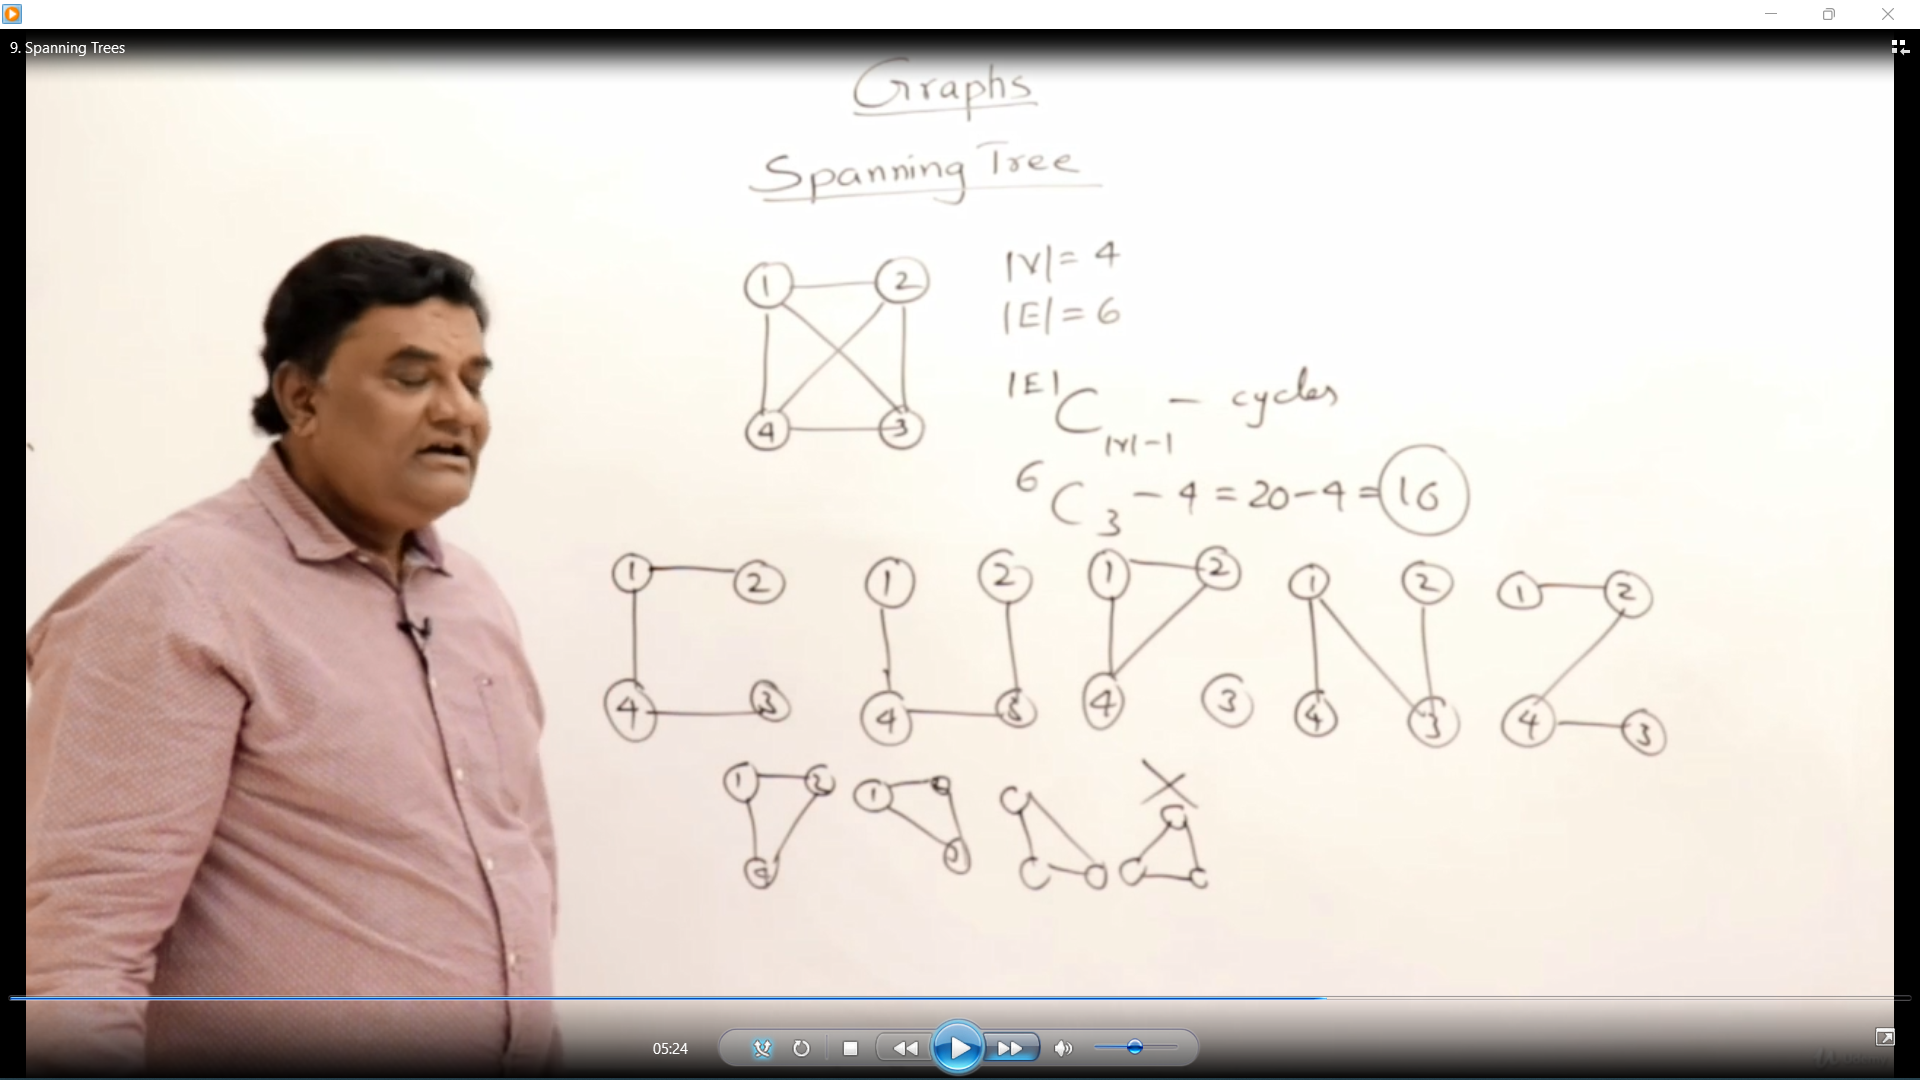 9. Spanning Trees
Graphs
Spanning Tree
1 2
4 3
|V| = 4
|E| = 6
|E|C|V|-1 - cycles
6C3 - 4 = 20 - 4 = 16
1 2 1 2 1 2 1 2 1 2
4 3 4 3 4 3 4 3 4 3
1 2 1
05:24